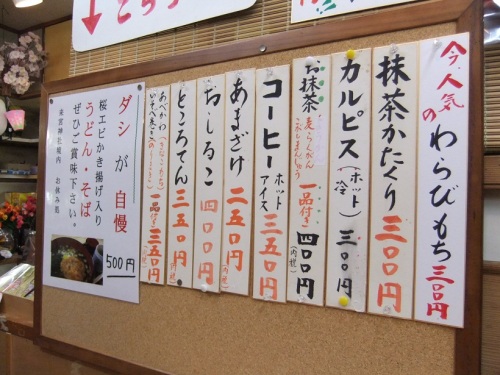 今、人気の
わらびもち 三〇〇円
抹茶かたくり 三〇〇円
カルピス(ホット)(冷) 三〇〇円
お抹茶 一品付き 四〇〇円(内税)
コーヒー ホット アイス 三五〇円(内税)
あまざけ 二五〇円(内税)
おしるこ 四〇〇円
ところてん 三五〇円(内税)
あべかわ
一品付き 三五〇円(内税)
ダシが自慢
桜エビかき揚げ入り
うどん・そば
ぜひご賞味下さい。
お休み処
500円